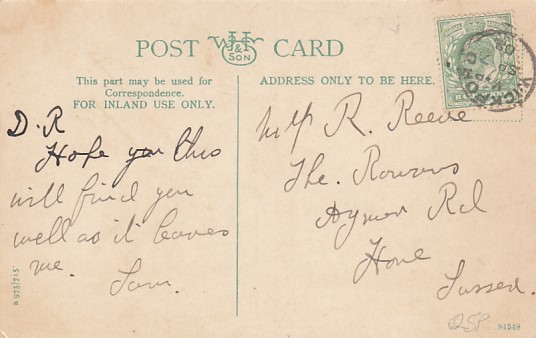 POST CARD
J&S SON
This part may be used for
Correspondence.
FOR INLAND USE ONLY.
ADDRESS ONLY TO BE HERE.
D. R
Hope you this
will find you
well as it leaves
me.
Sam.
R. Reeve
The. Rowans
Aymer Rd
Hove
Sussex.
25P
84548